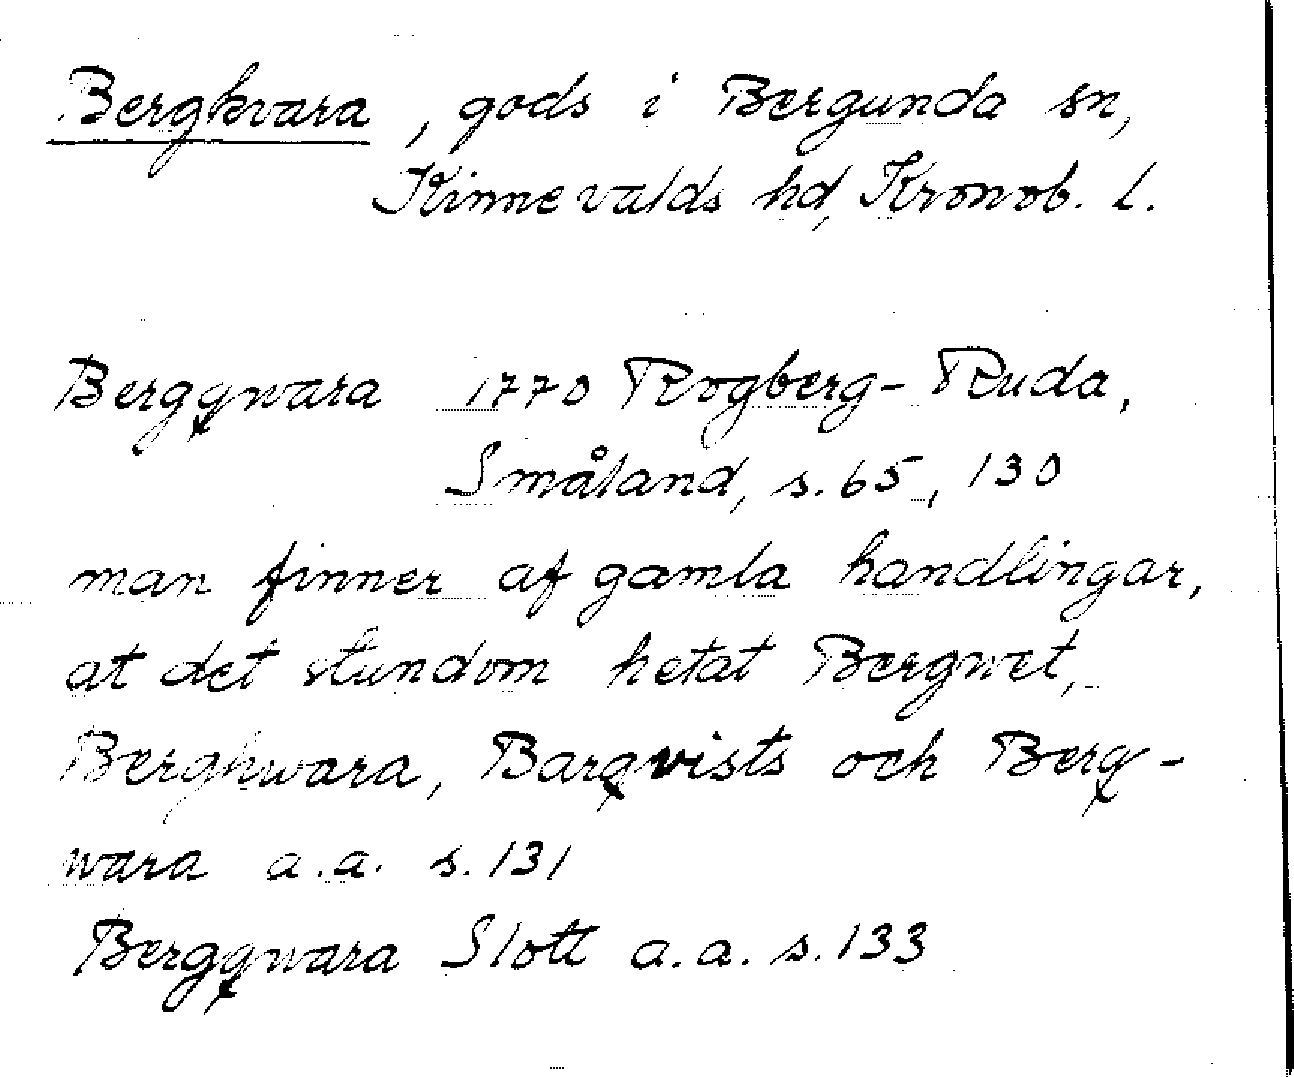 Bergkvara, gods i Bergunda sn,
Kinnevalds hd, Kronob. l.
Bergqwara 1770 Rogberg-Ruda,
Småland, s. 65, 130
man finner af gamla handlingar,
at det stundom hetat Bergwet,
Berghwara, Barqvists och Berq-
wara a.a. s. 131
Bergqwara Slott a.a. s. 133